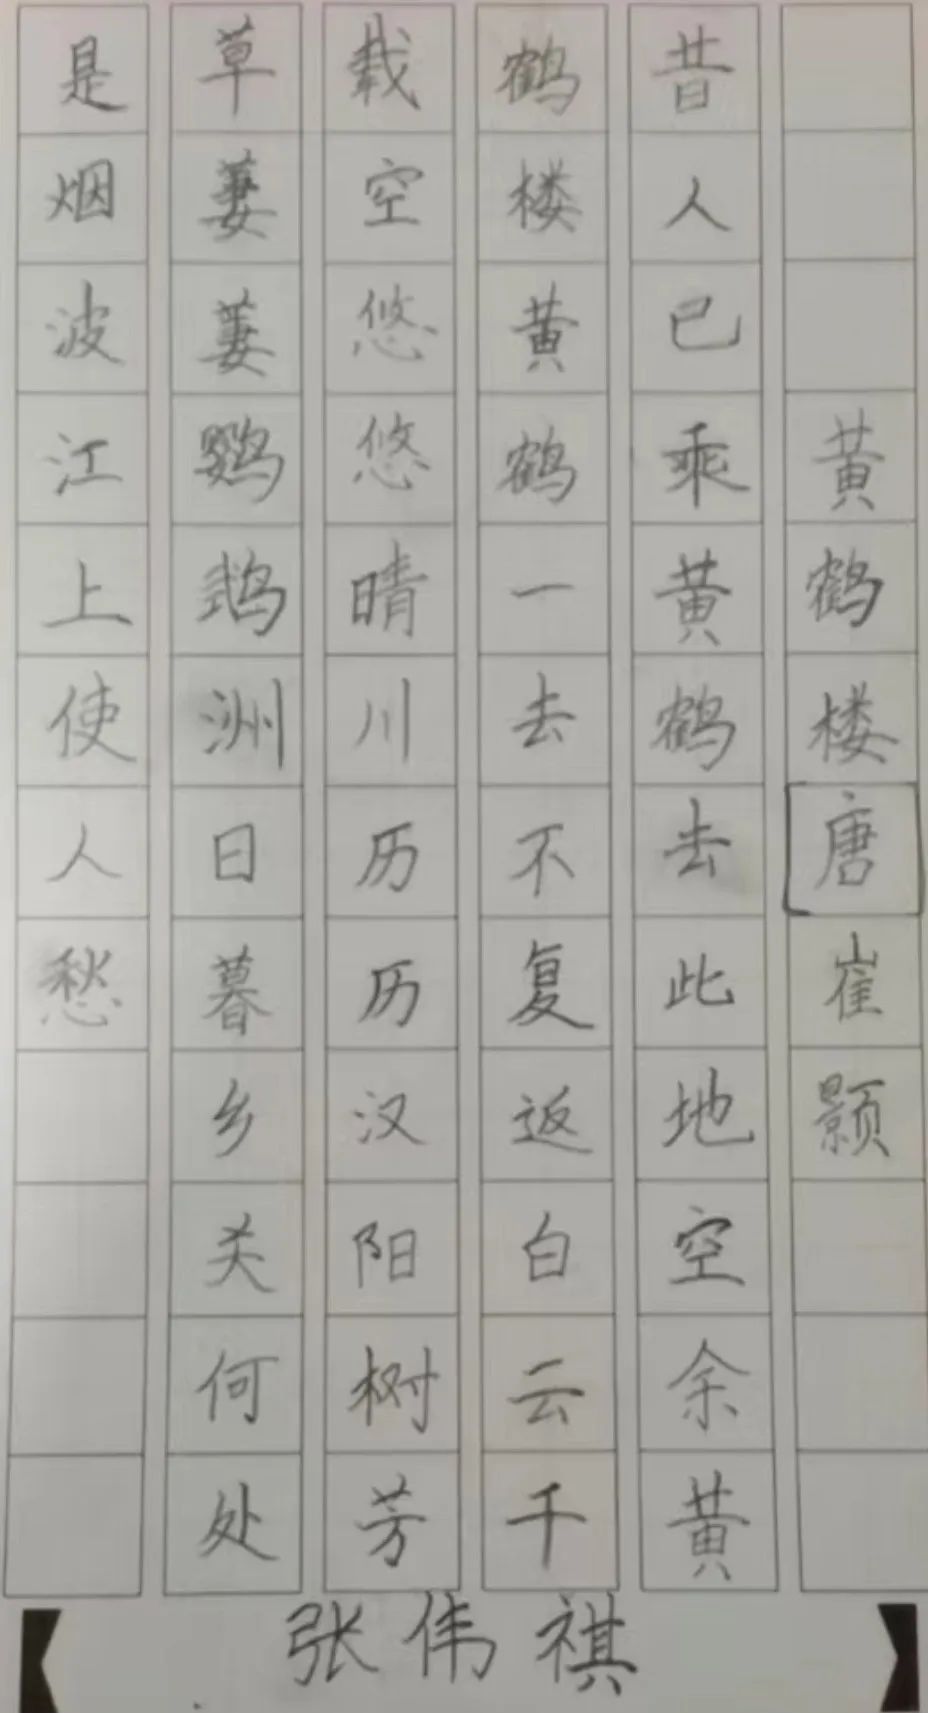 黄鹤楼[唐]崔颢
昔人已乘黄鹤去此地空余黄
鹤楼黄鹤一去不复返白云千
载空悠悠晴川历历汉阳树芳
草萋萋鹦鹉洲日暮乡关何处
是烟波江上使人愁
张伟祺